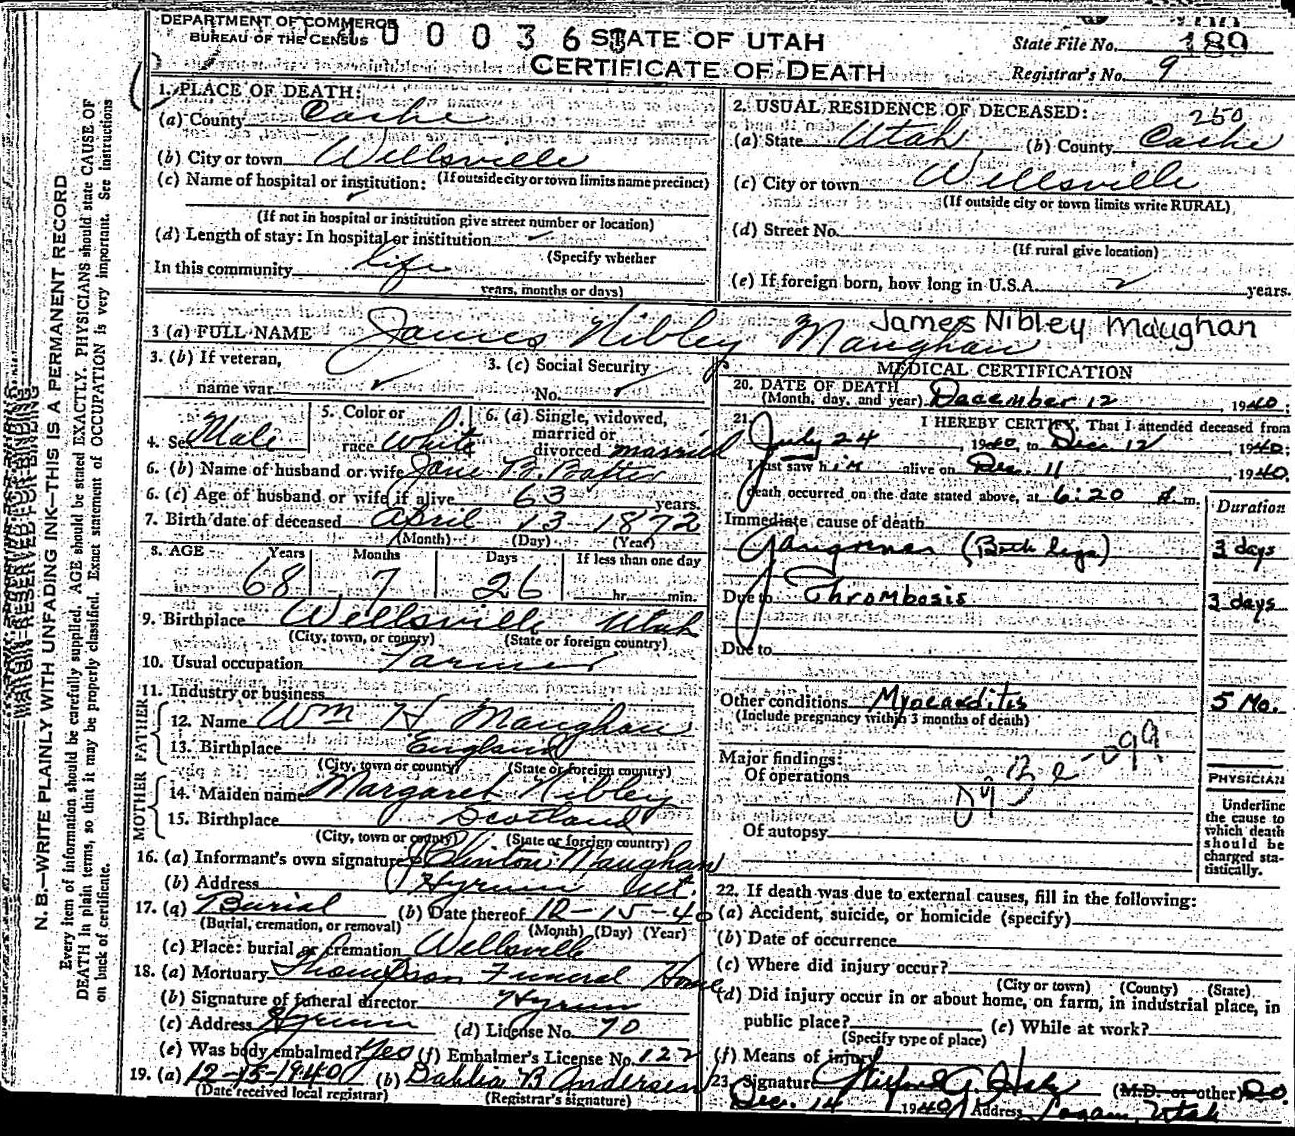 DEPARTMENT OF COMMERCE
BUREAU OF THE CENSUS
0 0 0 3 6
STATE OF UTAH
CERTIFICATE OF DEATH
State File No. 189
Registrar's No. 9
N. B.—WRITE PLAINLY WITH UNFADING INK—THIS IS A PERMANENT RECORD
Every item of information should be carefully supplied. AGE should be stated EXACTLY. PHYSICIANS should state CAUSE OF
DEATH in plain terms, so that it may be properly classified. Exact statement of OCCUPATION is very important. See instructions
on back of certificate.
MARGIN RESERVED FOR BINDING
1. PLACE OF DEATH:
(a) County Cache
(b) City or town Wellsville
(If outside city or town limits name precinct)
(c) Name of hospital or institution:
(If not in hospital or institution give street number or location)
(d) Length of stay: In hospital or institution
(Specify whether
In this community life
years, months or days)
2. USUAL RESIDENCE OF DECEASED:
250
(a) State Utah (b) County Cache
(c) City or town Wellsville
(If outside city or town limits write RURAL)
(d) Street No.
(If rural give location)
(e) If foreign born, how long in U.S.A. years.
3 (a) FULL NAME James Nibley Maughan James Nibley Maughan
3. (b) If veteran,
name war
3. (c) Social Security
No.
4. Sex Male
5. Color or
race white
6. (a) Single, widowed,
married or
divorced married
6. (b) Name of husband or wife Jane B.
6. (c) Age of husband or wife if alive 63 years.
7. Birth date of deceased April 13 1872
(Month) (Day) (Year)
8. AGE Years Months Days If less than one day
68 7 26 hr. min.
9. Birthplace Wellsville Utah
(City, town, or county) (State or foreign country)
10. Usual occupation Farmer
11. Industry or business
FATHER
12. Name Wm H Maughan
13. Birthplace England
(City, town or county) (State or foreign country)
MOTHER
14. Maiden name Margaret Nibley
15. Birthplace Scotland
(City, town or county) (State or foreign country)
16. (a) Informant's own signature J Clinton Maughan
(b) Address Hyrum Ut.
17. (a) Burial (b) Date thereof 12-15-40
(Burial, cremation, or removal) (Month) (Day) (Year)
(c) Place: burial or cremation Wellsville
18. (a) Mortuary Thompson Funeral Home
(b) Signature of funeral director Hyrum
(c) Address Hyrum (d) License No. 70
(e) Was body embalmed? Yes (f) Embalmer's License No. 122
19. (a) 12-15-1940 (b) Dahlia B Andersen
(Date received local registrar) (Registrar's signature)
MEDICAL CERTIFICATION
20. DATE OF DEATH
(Month, day, and year) December 12, 1940;
21. I HEREBY CERTIFY, That I attended deceased from
July 24, 1940, to Dec. 12, 1940;
I last saw him alive on Dec. 11, 1940.
death occurred on the date stated above, at 6:20 A m.
Duration
Immediate cause of death
(Both legs) 3 days
Due to Thrombosis 3 days
Due to
Other conditions Myocarditis 5 Mo.
(Include pregnancy within 3 months of death)
Major findings:
Of operations
Of autopsy
PHYSICIAN
Underline
the cause to
which death
should be
charged sta-
tistically.
22. If death was due to external causes, fill in the following:
(a) Accident, suicide, or homicide (specify)
(b) Date of occurrence
(c) Where did injury occur?
(City or town) (County) (State)
(d) Did injury occur in or about home, on farm, in industrial place, in
public place? (e) While at work?
(Specify type of place)
(f) Means of injury
23. Signature (M.D. or other) DO.
Dec. 14 1940 Address Logan, Utah